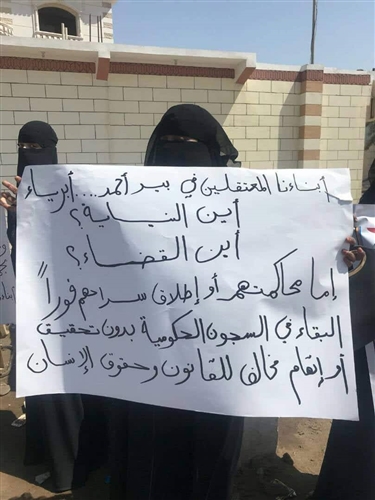 أبناءنا المعتقلين في بير أحمد....أبرياء
أين النيابة؟
أين القضاء؟
إما محاكمتهم أو إطلاق سراحهم فوراً
البقاء في السجون الحكومية بدون تحقيق
أو إتهام مخالف للقانون وحقوق الإنسان